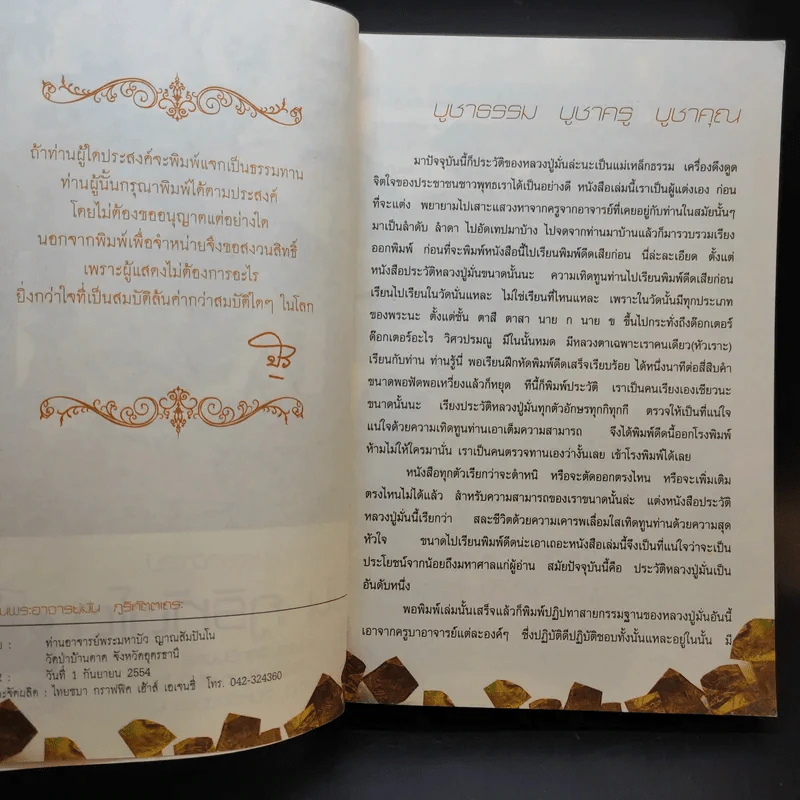 ถ้าท่านผู้ใดประสงค์จะพิมพ์แจกเป็นธรรมทาน
ท่านผู้นั้นกรุณาพิมพ์ได้ตามประสงค์
โดยไม่ต้องขออนุญาตแต่อย่างใด
นอกจากพิมพ์เพื่อจำหน่ายจึงขอสงวนสิทธิ์
เพราะผู้แสดงไม่ต้องการอะไร
ยิ่งกว่าใจที่เป็นสมบัติล้นค่ากว่าสมบัติใดๆ ในโลก
พระอาจารย์มั่น ภูริทัตตเถระ
ท่านอาจารย์พระมหาบัว ญาณสัมปันโน
วัดป่าบ้านตาด จังหวัดอุดรธานี
วันที่ 1 กันยายน 2554
จัดผลิต : ไทยชบา กราฟฟิค เฮ้าส์ เอเจนซี่ โทร. 042-324360
บูชาธรรม บูชาครู บูชาคุณ
มาปัจจุบันนี้ก็ประวัติของหลวงปู่มั่นล่ะนะเป็นแม่เหล็กธรรม เครื่องดึงดูด
จิตใจของประชาชนชาวพุทธเราได้เป็นอย่างดี หนังสือเล่มนี้เราเป็นผู้แต่งเอง ก่อน
ที่จะแต่ง พยายามไปเสาะแสวงหาจากครูจากอาจารย์ที่เคยอยู่กับท่านในสมัยนั้นๆ
มาเป็นลำดับ ลำดา ไปอัดเทปมาบ้าง ไปจดจากท่านมาบ้านแล้วก็มารวบรวมเรียง
ออกพิมพ์ ก่อนที่จะพิมพ์หนังสือนี้ไปเรียนพิมพ์ดีดเสียก่อน นี่ล่ะละเอียด ตั้งแต่
หนังสือประวัติหลวงปู่มั่นขนาดนั้นนะ ความเทิดทูนท่านไปเรียนพิมพ์ดีดเสียก่อน
เรียนไปเรียนในวัดนั่นแหละ ไม่ใช่เรียนที่ไหนแหละ เพราะในวัดนั้นมีทุกประเภท
ของพระนะ ตั้งแต่ชั้น ตาสี ตาสา นาย ก นาย ข ขึ้นไปกระทั่งถึงด๊อกเตอร์
ด๊อกเตอร์อะไร วิศวปรมณู มีในนั้นหมด มีหลวงตาเฉพาะเราคนเดียว(หัวเราะ)
เรียนกับท่าน ท่านรู้นี่ พอเรียนฝึกหัดพิมพ์ดีดเสร็จเรียบร้อย ได้หนึ่งนาทีต่อสี่สิบคำ
ขนาดพอฟัดพอเหวี่ยงแล้วก็หยุด ทีนี้ก็พิมพ์ประวัติ เราเป็นคนเรียงเองเชียวนะ
ขนาดนั้นนะ เรียงประวัติหลวงปู่มั่นทุกตัวอักษรทุกกิทุกกี ตรวจให้เป็นที่แน่ใจ
แน่ใจด้วยความเทิดทูนท่านเอาเต็มความสามารถ จึงได้พิมพ์ดีดนี้ออกโรงพิมพ์
ห้ามไม่ให้ใครมานั่น เราเป็นคนตรวจทานเองว่างั้นเลย เข้าโรงพิมพ์ได้เลย
หนังสือทุกตัวเรียกว่าจะตำหนิ หรือจะตัดออกตรงไหน หรือจะเพิ่มเติม
ตรงไหนไม่ได้แล้ว สำหรับความสามารถของเราขนาดนั้นล่ะ แต่งหนังสือประวัติ
หลวงปู่มั่นนี้เรียกว่า สละชีวิตด้วยความเคารพเลื่อมใสเทิดทูนท่านด้วยความสุด
หัวใจ ขนาดไปเรียนพิมพ์ดีดน่ะเอาเถอะหนังสือเล่มนี้จึงเป็นที่แน่ใจว่าจะเป็น
ประโยชน์จากน้อยถึงมหาศาลแก่ผู้อ่าน สมัยปัจจุบันนี้คือ ประวัติหลวงปู่มั่นเป็น
อันดับหนึ่ง
พอพิมพ์เล่มนั้นเสร็จแล้วก็พิมพ์ปฏิปทาสายกรรมฐานของหลวงปู่มั่นอันนี้
เอาจากครูบาอาจารย์แต่ละองค์ๆ ซึ่งปฏิบัติดีปฏิบัติชอบทั้งนั้นแหละอยู่ในนั้น มี